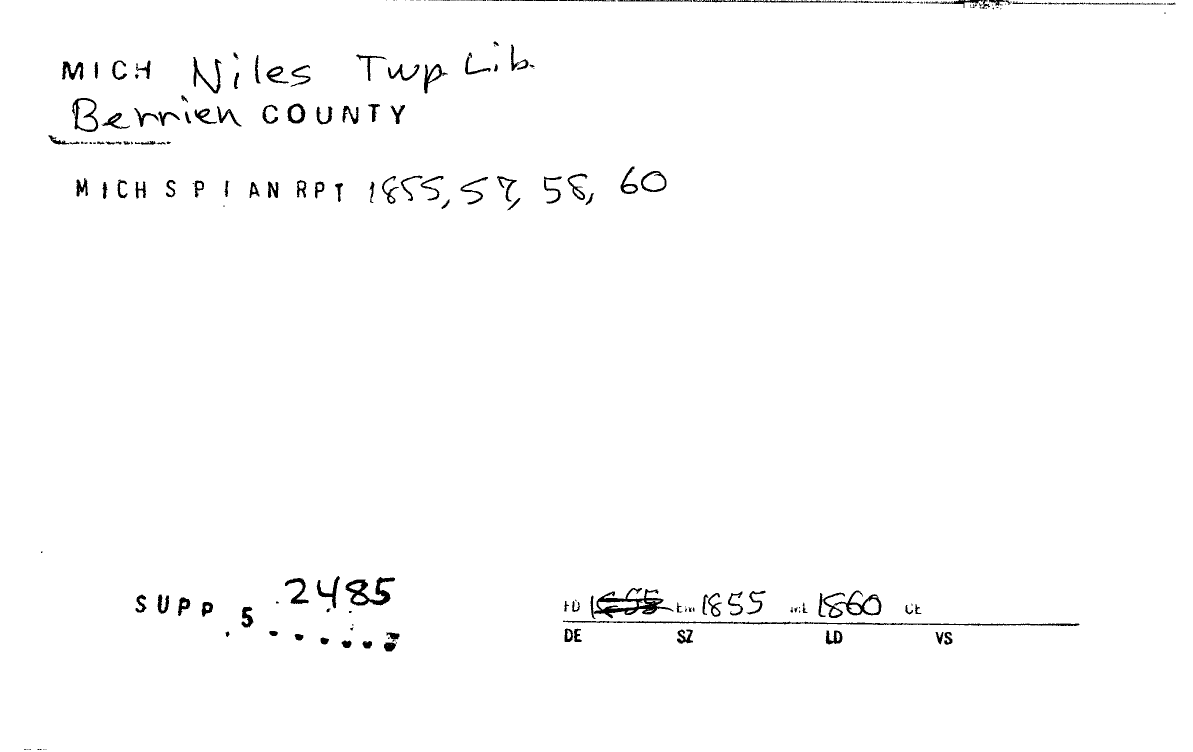 MICH Niles Twp Lib.
Berrien COUNTY
MICH S P I AN RPT 1855, 57, 58, 60
SUPP. 5 2485
1855 1855 1860
DE SZ LD VS